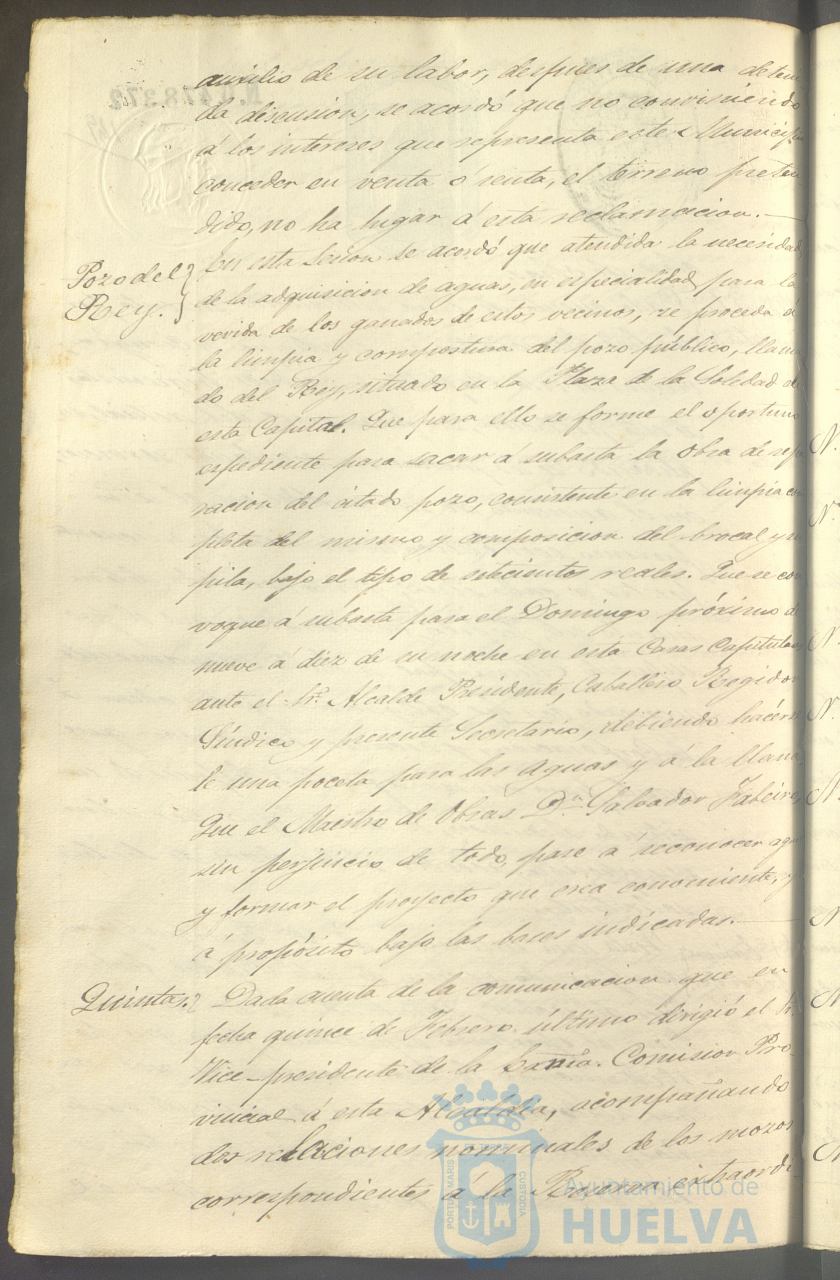 auxilio de su labor, despues de una deteni
da discusion, se acordó que no conviniendo
á los intereses que representa este Municipio
conceder en venta o renta, el terreno preten
dido, no ha lugar á esta reclamacion.
Pozo del
Rey.
En esta Sesion se acordó que atendida la necesidad
de la adquisicion de aguas, en especialidad para la
vevida de los ganados de estos vecinos, se proceda á
la limpia y compostura del pozo público, llama
do del Rey, situado en la Plaza de la Soledad de
esta Capital. Que para ello se forme el oportuno
espediente para sacar á subasta la obra de repa
racion del citado pozo, consistente en la limpia com
pleta del mismo y composicion del brocal y
pila, bajo el tipo de setecientos reales. Que se con
voque á subasta para el Domingo próximo de
nueve á diez de su noche en esta Casas Capitulares
ante el Sr. Alcalde Presidente, Caballero Regidor
Síndico y presente Secretario, debiendo hacerse
le una poceta para las aguas y á la llana
Que el Maestro de Obras Dn. Salvador
sin perjuicio de todo, pase á reconocer aquel
y formar el proyecto que crea conveniente, y
á propósito bajo las bases indicadas.
Quintas.
Dada cuenta de la comunicacion que en
fecha quince de Febrero último dirigió el Sr.
Vice-presidente de la Comision Pro-
vincial á esta Alcaldia, acompañando
dos relaciones nominales de los mozos
correspondientes á la Reserva extraordi-
PORTUS MARIS
CUSTODIA
Ayuntamiento de
HUELVA